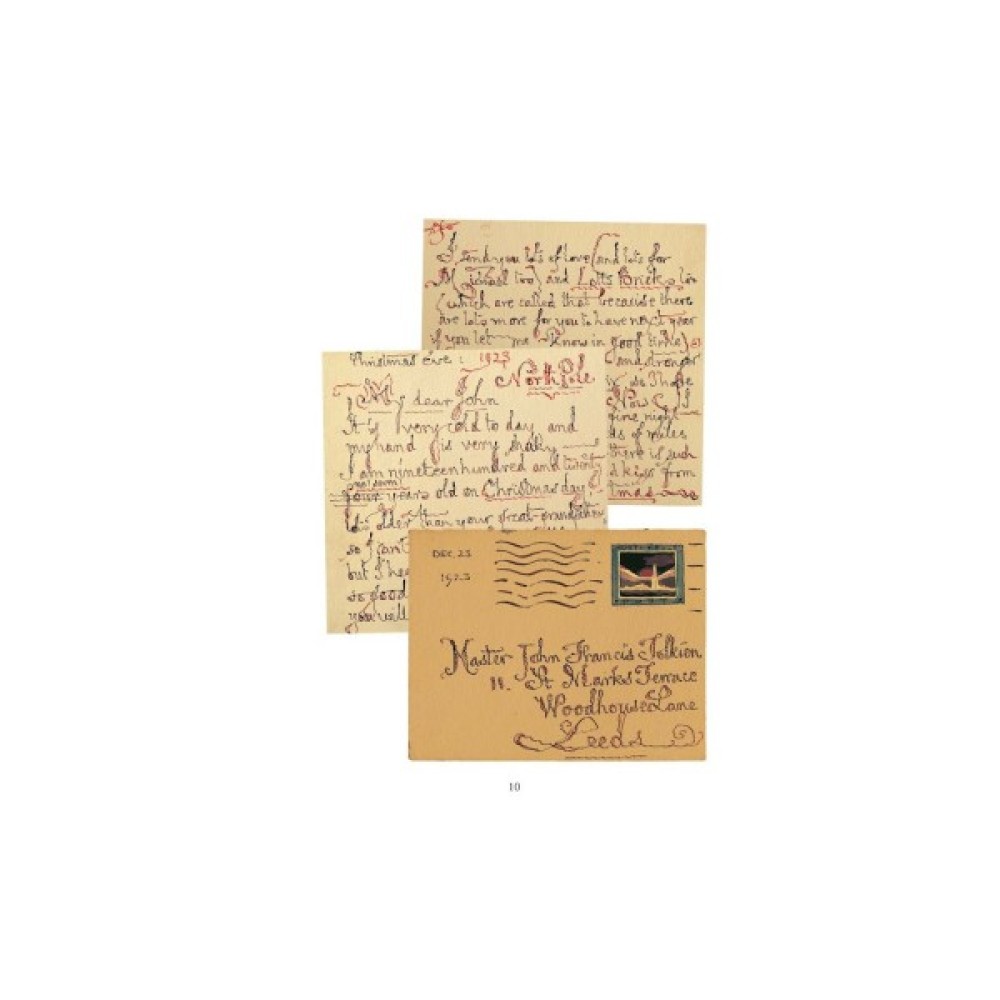 I send you lots of love (and lots for
Michael too) and Lotts Bricks too
(which are called that because there
are lots more for you to have next year
if you let me know in good time)
and stronger
Those
Now I
fine night
of miles
there is such
from
Christmas Eve: 1923
North Pole
My dear John
It is very cold to day and
my hand is very shaky
I am nineteen hundred and twenty
no! seven!
four years old on Christmas day
lots older than your great-grandfather
so I can't
but I hea
so good
you will
DEC. 23
1923
Master John Francis Tolkien
11. St Marks Terrace
Woodhouse Lane
Leeds
10